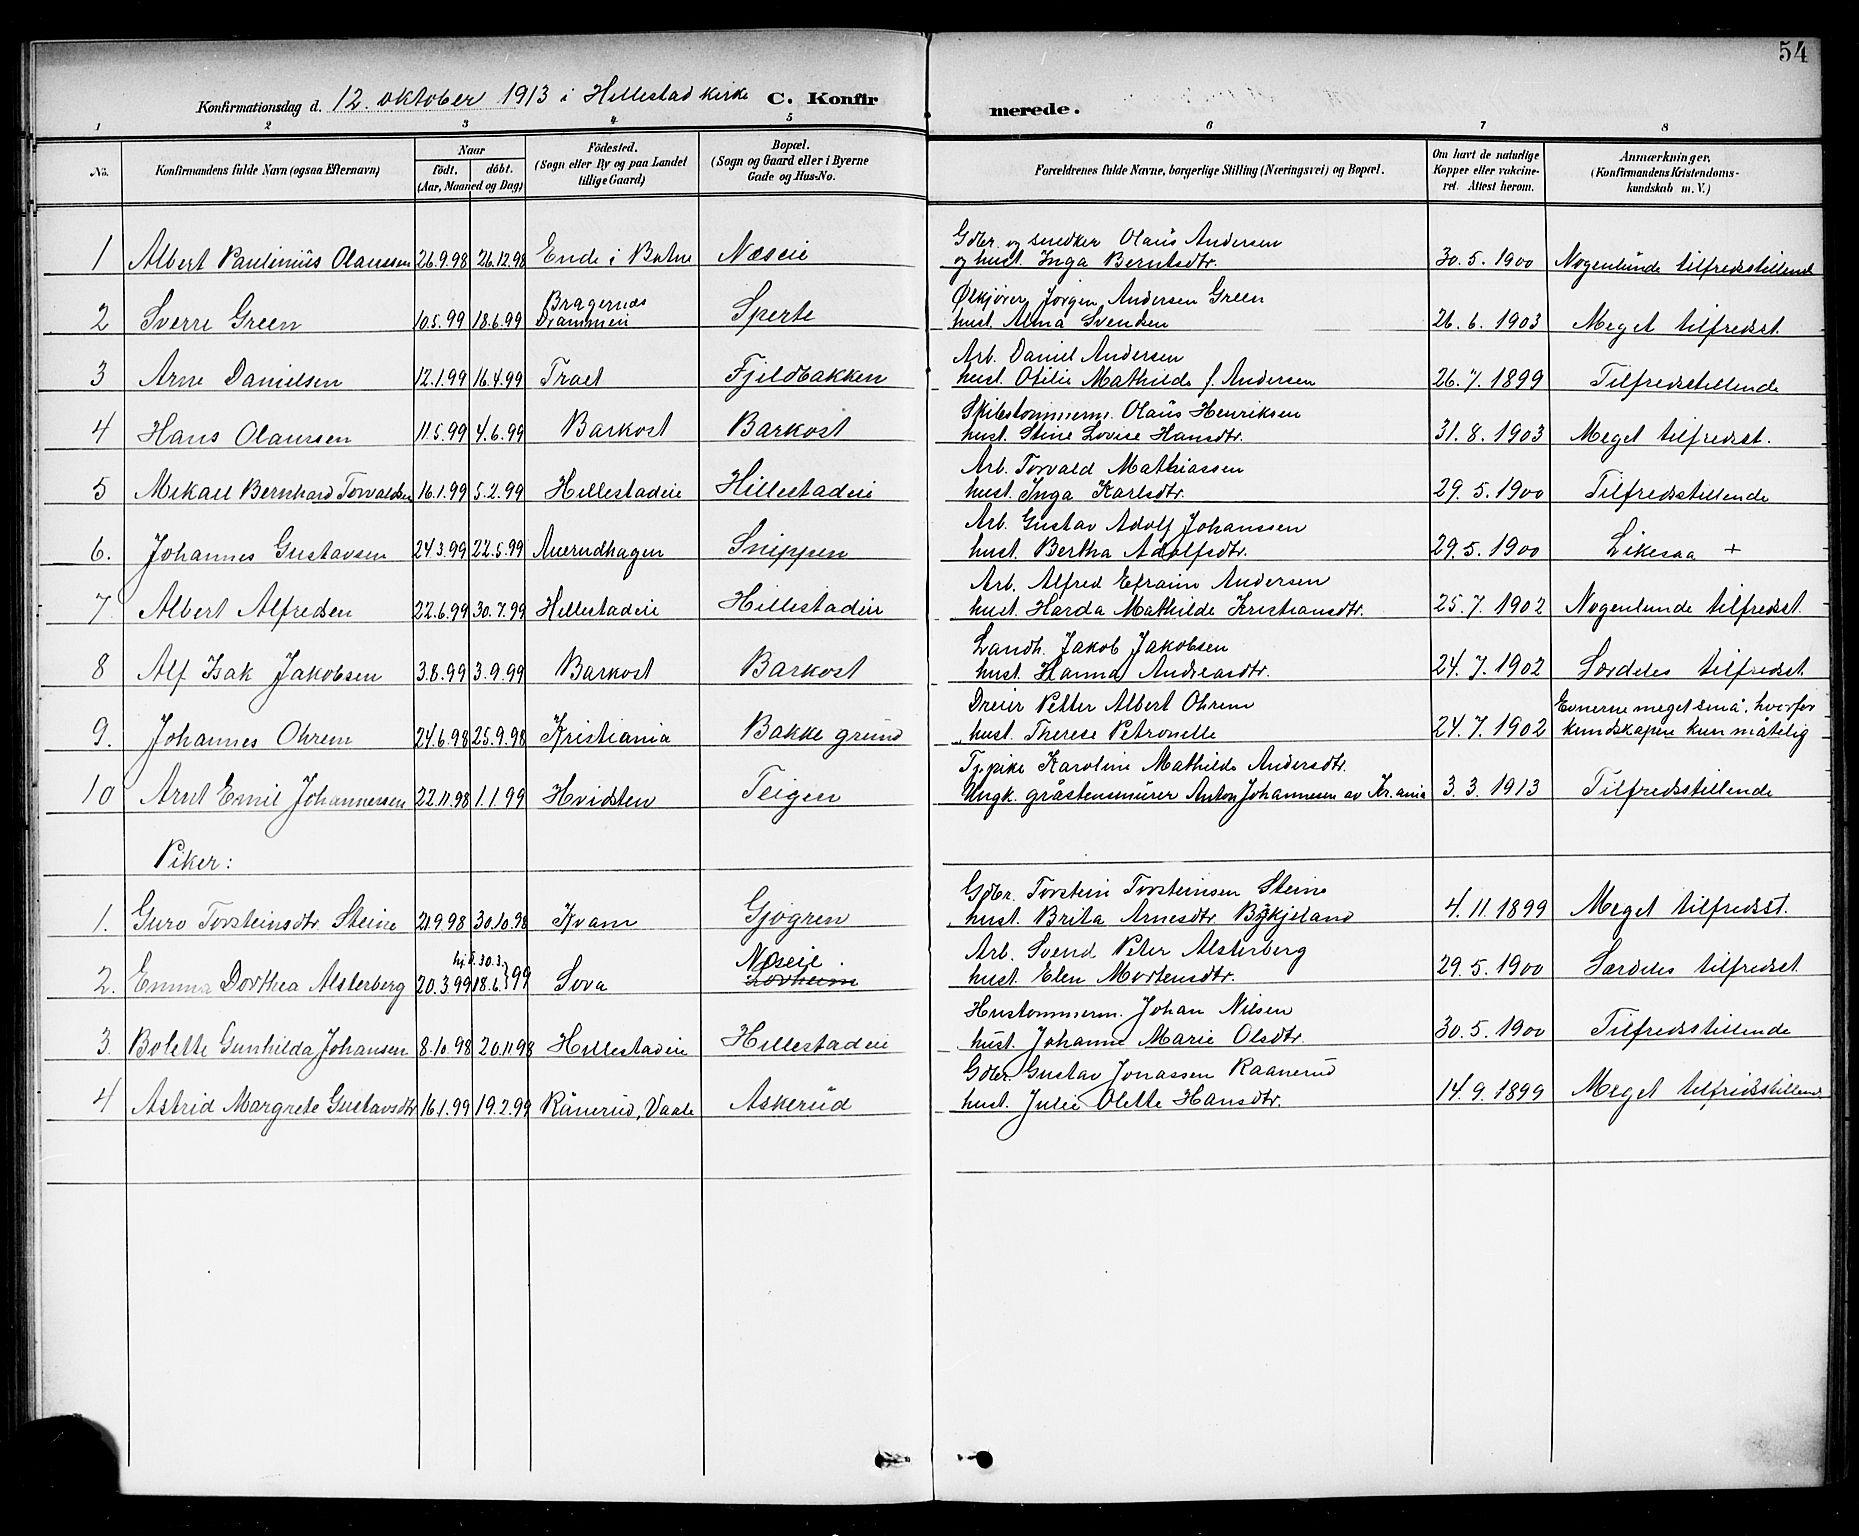 54
Konfirmationsdag d. 12. oktober 1913 i Hillestad kirke C. Konfirmerede.
1 2 3 4 5 6 7 8
No. Konfirmandens fulde Navn (ogsaa Efternavn) Naar født, døbt. (Aar, Maaned og Dag) Fødested. (Sogn eller By og paa Landet tillige Gaard) Bopæl. (Sogn og Gaard eller i Byerne Gade og Hus-No. Forældrenes fulde Navne, borgerlige Stilling (Næringsvei) og Bopæl. Om havt de naturlige Kopper eller vakcineret. Attest herom. Anmærkninger. (Konfirmandens Kristendomskundskab m. V.)
Gdbr. og snedker Olaus Andersen
1 Albert Paulinius Olaussen 26.9.98 26.12.98 Ende i Botne Næseie og hust. Inga Berntsdtr. 30.5.1900 Nogenlunde tilfredsstillend
Bragernæs Ølkjører Jørgen Andersen Green
2 Sverre Green 10.5.99 18.6.99 Drammen Sperte hust. Alma Svendsen 26.6.1903 Meget tilfredsst.
Arb. Daniel Andersen
3 Arne Danielsen 12.1.99 16.4.99 Fjeldbakken hust. Otilie Mathilde f. Andersen 26.7.1899 Tilfredsstillende
Skibstømmerm. Olaus Henriksen
4 Hans Olaussen 11.5.99 4.6.99 Barkost Barkost hust. Stine Lovise Hansdtr. 31.8.1903 Meget tilfredsst.
Arb. Torvald Mathiassen
5 Mikael Bernhard Torvaldsen 16.1.99 5.2.99 Hillestadeie Hillestadeie hust. Inga Karlsdtr. 29.5.1900 Tilfredsstillende
Arb. Gustav Adolf Johanssen
6. Johannes Gustavsen 24.3.99 22.5.99 Auerudhagen Snippen hust. Bertha Adolfsdtr. 29.5.1900 Likesaa +
Arb. Alfred Efraim Andersen
7. Albert Alfredsen 22.6.99 30.7.99 Hillestadeie Hillestadeie hust. Harda Mathilde Kristiansdtr. 25.7.1902 Nogenlunde tilfredsst.
Landh. Jakob Jakobsen
8 Alf Isak Jakobsen 3.8.99 3.9.99 Barkost Barkost hust. Hanna Andreasdtr. 24.7.1902 Særdeles tilfredsst.
Dreier Petter Albert Ohrem Evnerne meget små, hvorfor
9. Johannes Ohrem 24.6.98 25.9.98 Kristiania Bakke grund hust. Therese Petronelle 24.7.1902 kundskapen kun måtelig
Tj.pike Karoline Mathilde Andersdtr.
10 Arnt Emil Johannessen 22.11.98 1.1.99 Hvidsten Teigen Ungk. gråstensmurer Anton Johannesen av Kr.ania 3.3.1913 Tilfredsstillende
Piker:
Gdbr. Torstein Torsteinsen Steine
1. Guro Torsteinsdtr. Steine 21.9.98 30.10.98 Kvam Gjøgren hust. Brita Arnesdtr. Bykjeland 4.11.1899 Meget tilfredsst.
hj.d. 30.3. Næseie. Arb. Svend Peter Alsterberg
2. Emma Dorthea Alsterberg 20.3.99 18.6. } 99 Sova Løvheim hust. Elen Mortensdtr. 29.5.1900 Særdeles tilfredsst
Hustømmerm. Johan Nilsen
3. Bolette Gunhilda Johansen 8.10.98 20.11.98 Hillestadeie Hillestadeie hust. Johanne Marie Olsdtr. 30.5.1900 Tilfredsstillende
Gdbr. Gustav Jonassen Raanerud
4 Astrid Margrete Gustavsdtr 16.1.99 19.2.99 Rånerud, Vaale Askerud hust. Julie Olette Hansdtr. 14.9.1899 Meget tilfredsstillend